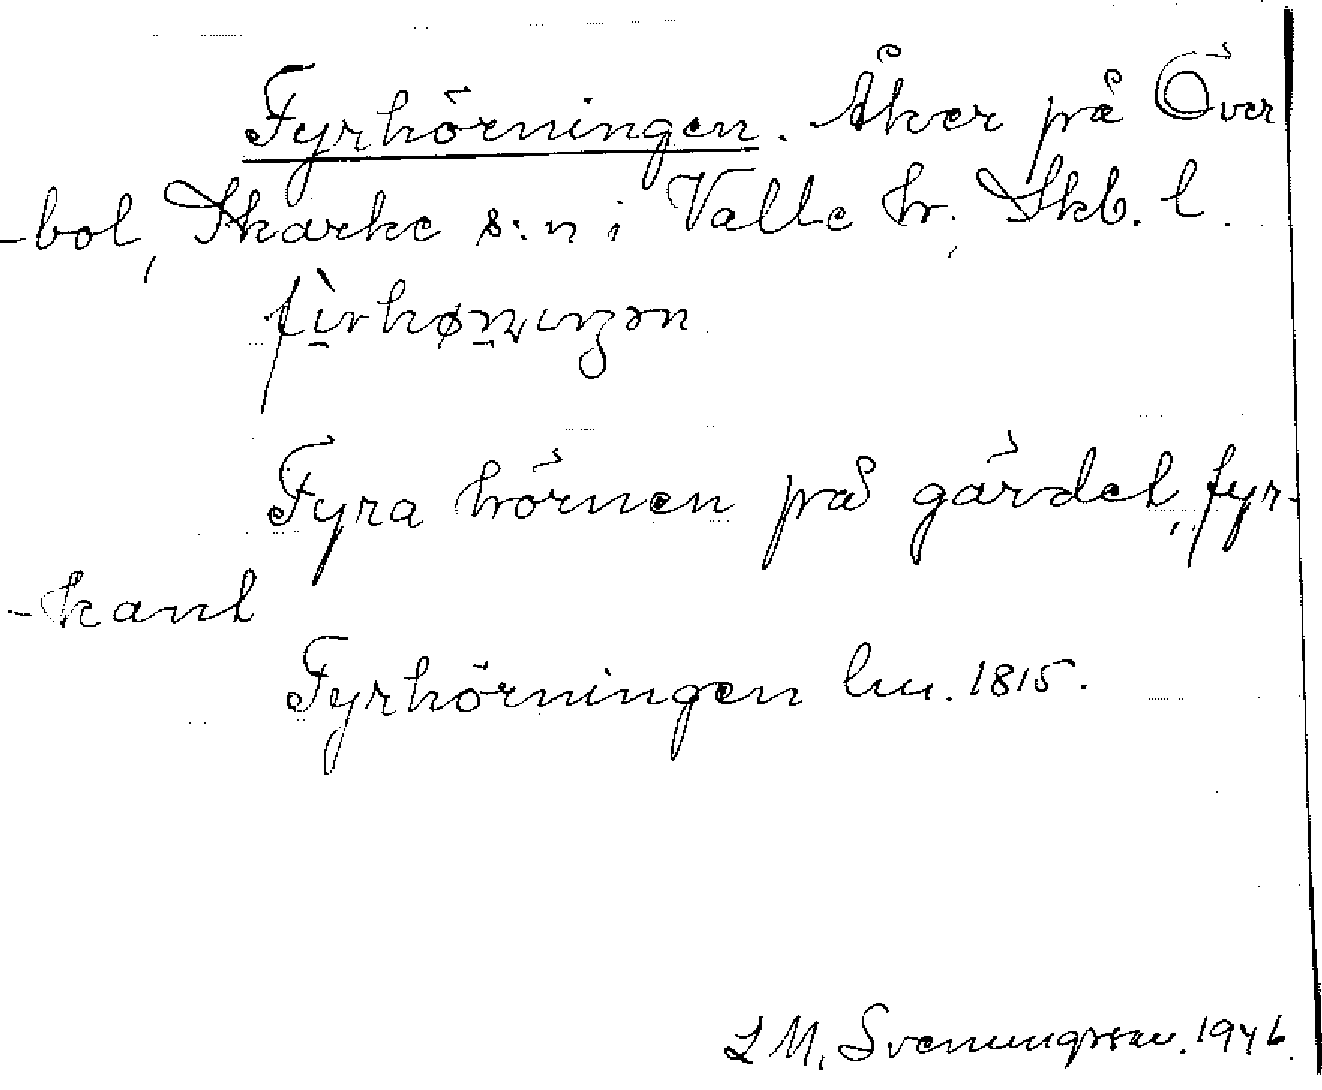 Fyrhörningen. Åker på Över
-bol, Skarke s:n i Valle hr, Skb. l.
Fyra hörnen på gärdet, fyr-
-kant
Fyrhörningen lm. 1815.
L M. Svenungsson. 1946.